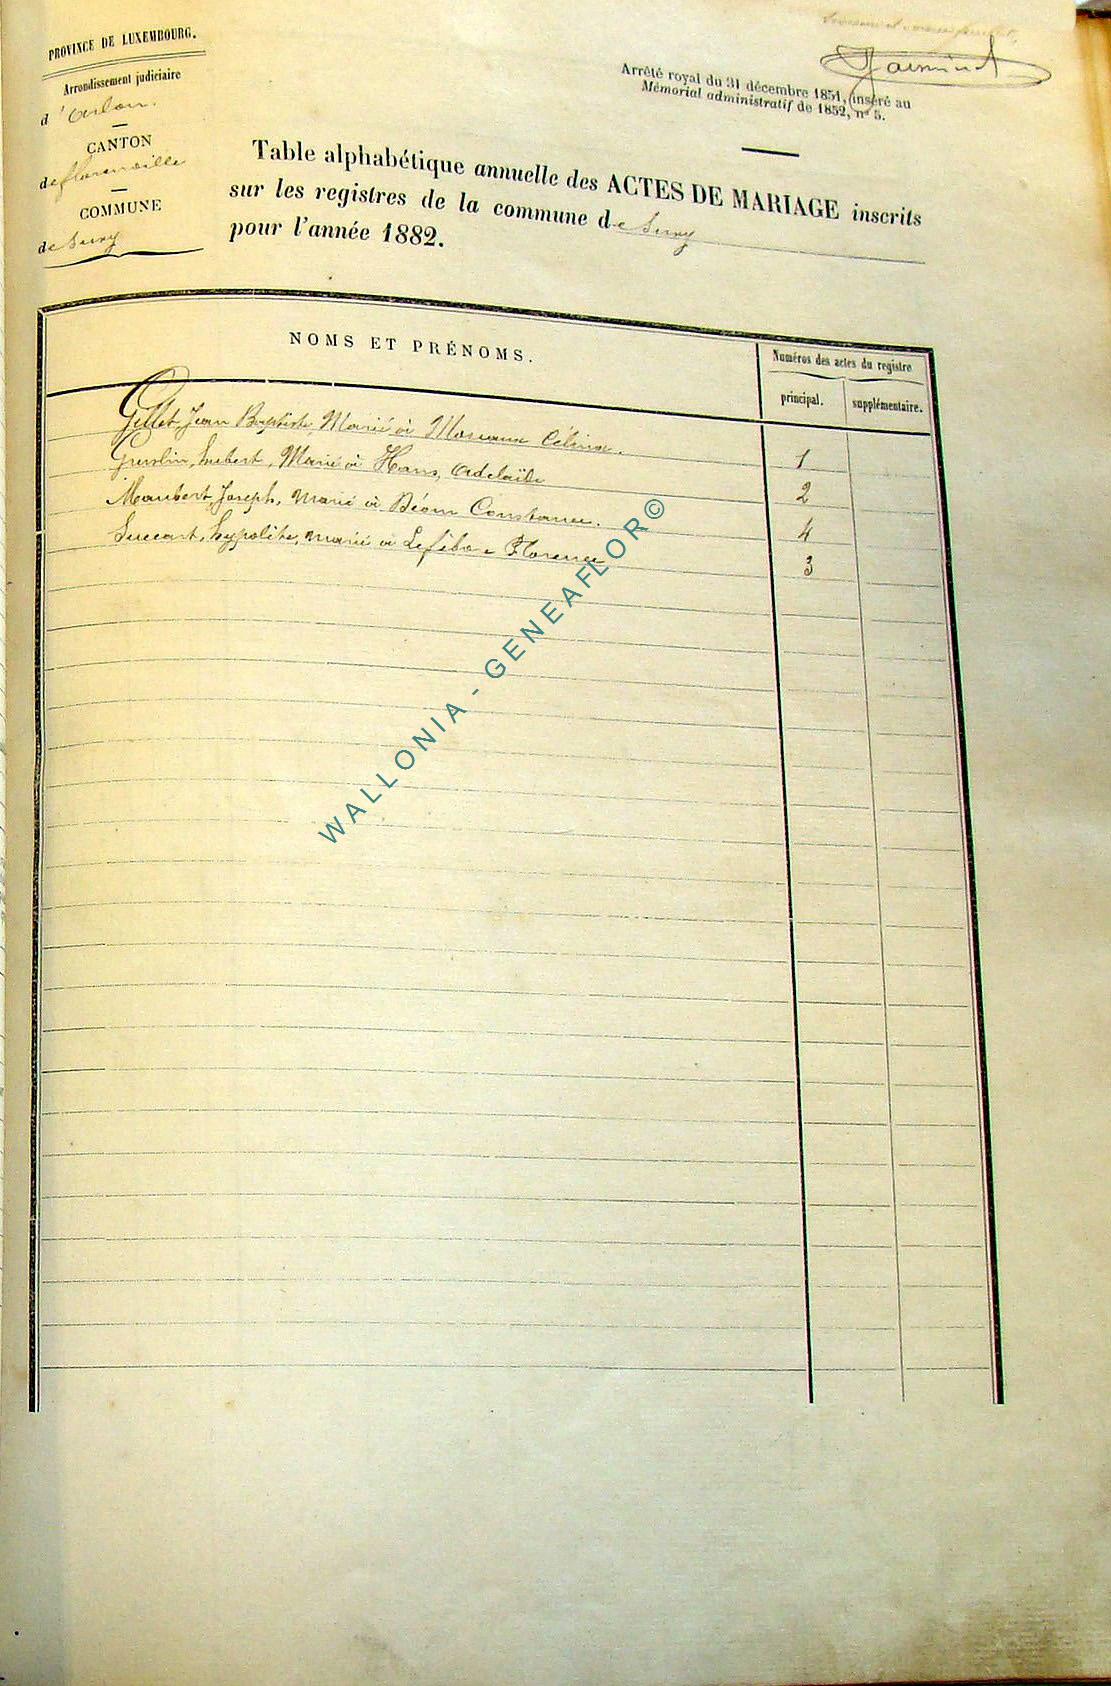 PROVINCE DE LUXEMBOURG.
Arrondissement judiciaire
d'Arlon.
CANTON
de florenville
COMMUNE
de Suxy
Arrêté royal du 31 décembre 1851, inséré au
Mémorial administratif de 1852, n° 5.
Table alphabétique annuelle des ACTES DE MARIAGE inscrits
sur les registres de la commune de Suxy
pour l'année 1882.
NOMS ET PRÉNOMS.
Numéros des actes du registre
principal.
supplémentaire.
Gillet, Jean Baptiste, Marié à Moreaux Célina. 1
Hubert, Marié à Hans, Adelaïde 2
Maubert, Joseph, marié à Constance. 4
Hypolite, marié à Lefèbvre Florence 3
WALLONIA - GENEAFLOR©